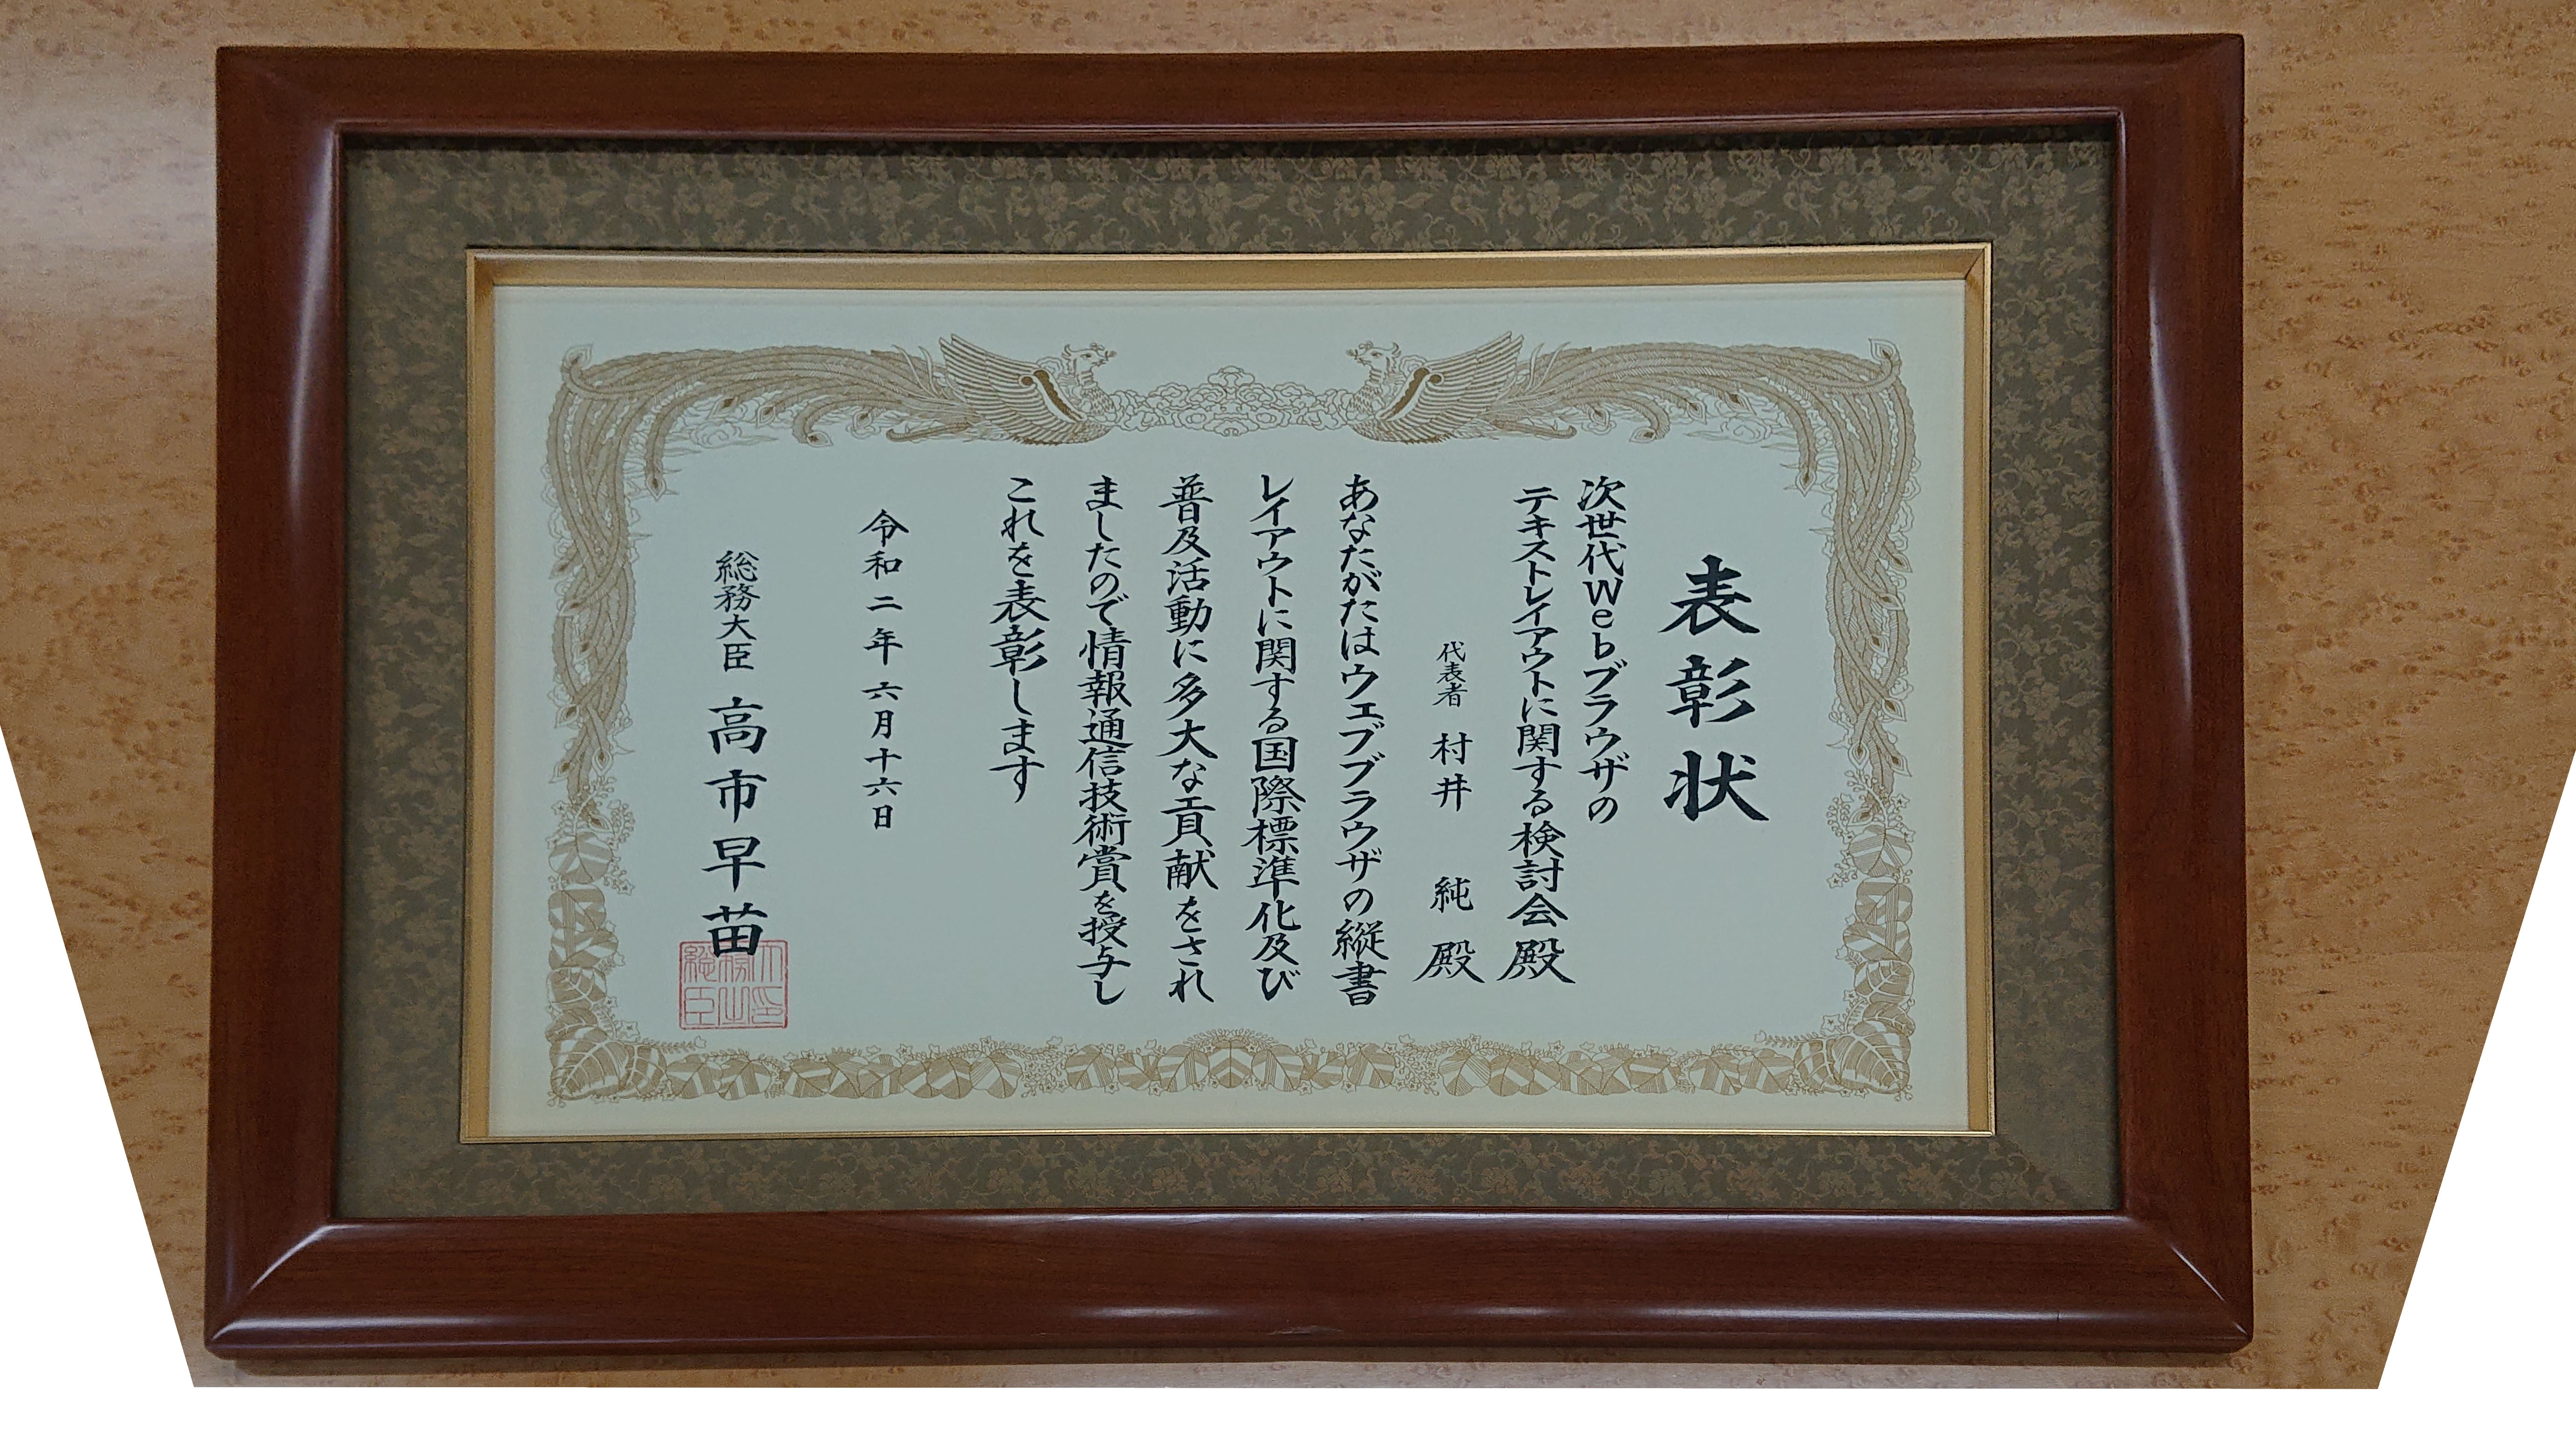 表彰状
次世代Webブラウザの
テキストレイアウトに関する検討会 殿
代表者 村井 純 殿
あなたがたはウェブブラウザの縦書
レイアウトに関する国際標準化及び
普及活動に多大な貢献をされ
ましたので情報通信技術賞を授与し
これを表彰します
令和二年六月十六日
総務大臣 高市早苗
総務大臣之印